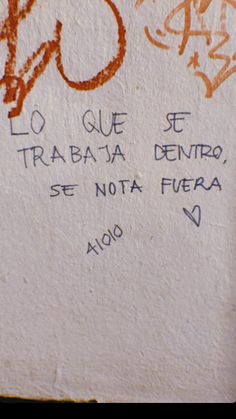 LO QUE SE
TRABAJA DENTRO,
SE NOTA FUERA
41010